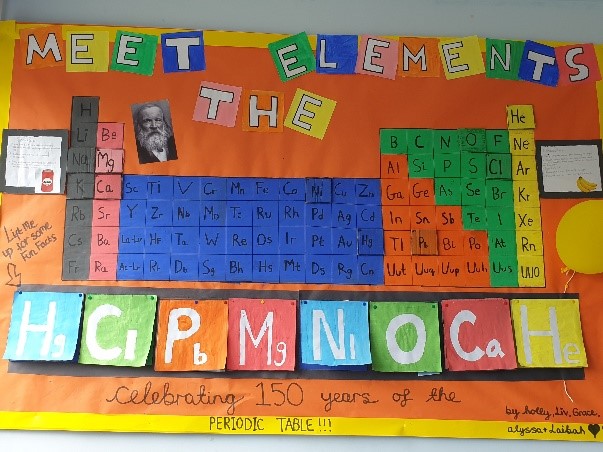 MEET ELEMENTS
THE
H He
Li Be B C N O F Ne
Na Mg Al Si P S Cl Ar
K Ca Sc Ti V Cr Mn Fe Co Ni Cu Zn Ga Ge As Se Br Kr
Rb Sr Y Zr Nb Mo Tc Ru Rh Pd Ag Cd In Sn Sb Te I Xe
Cs Ba La-Lu Hf Ta W Re Os Ir Pt Au Hg Tl Pb Bi Po At Rn
Fr Ra Ac-Lr Rf Db Sg Bh Hs Mt Ds Rg Cn Uut Uuq Uup Uuh Uus UUO
List Me
up for some
Fun Facts
Hg Cl Pb Mg Ni O Ca He
Celebrating 150 years of the
PERIODIC TABLE!!!
by holly, Liv, Grace,
alyssa + Laibah